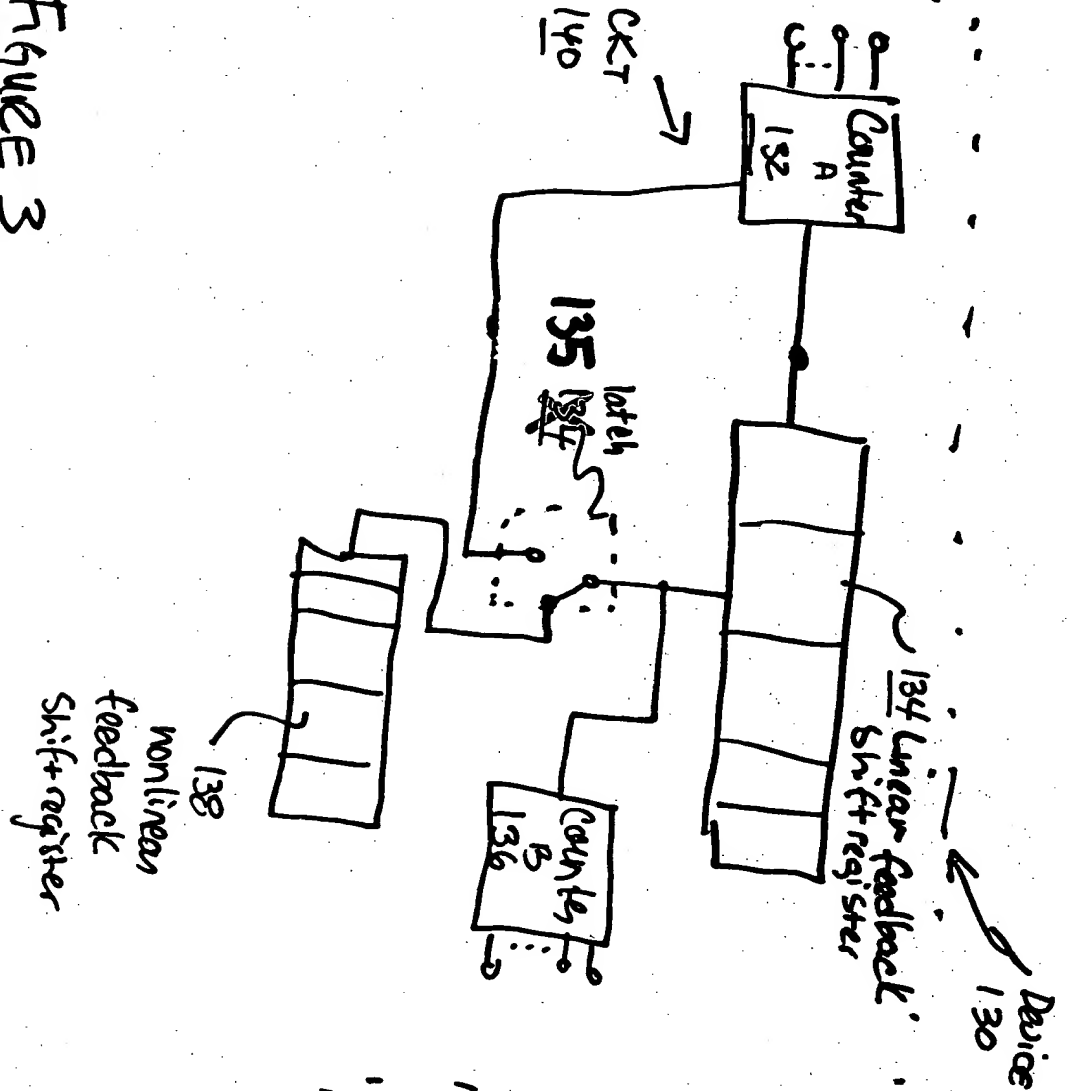 Device
130
Counter
A
132
134 Linear feedback
Shift register
CKT
140
latch
135
134
Counter
B
136
138
nonlinear
feedback
Shift register
FIGURE 3